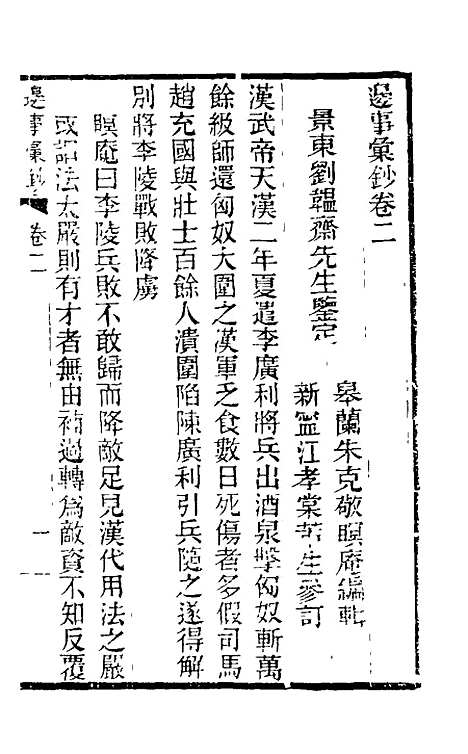 邊事彙鈔卷二
景東劉韞齋先生鑒定
皋蘭朱克敬暝庵編輯
新寧江孝棠 生參訂
漢武帝天漢二年夏遣李廣利將兵出酒泉擊匈奴斬萬
餘級師還匈奴大圍之漢軍乏食數日死傷者多假司馬
趙充國與壯士百餘人潰圍陷陳廣利引兵隨之遂得解
別將李陵戰敗降虜
暝庵曰李陵兵敗不敢歸而降敵足見漢代用法之嚴
或謂法太嚴則有才者無由補過轉為敵資不知反覆
邊事彙鈔 卷二 一